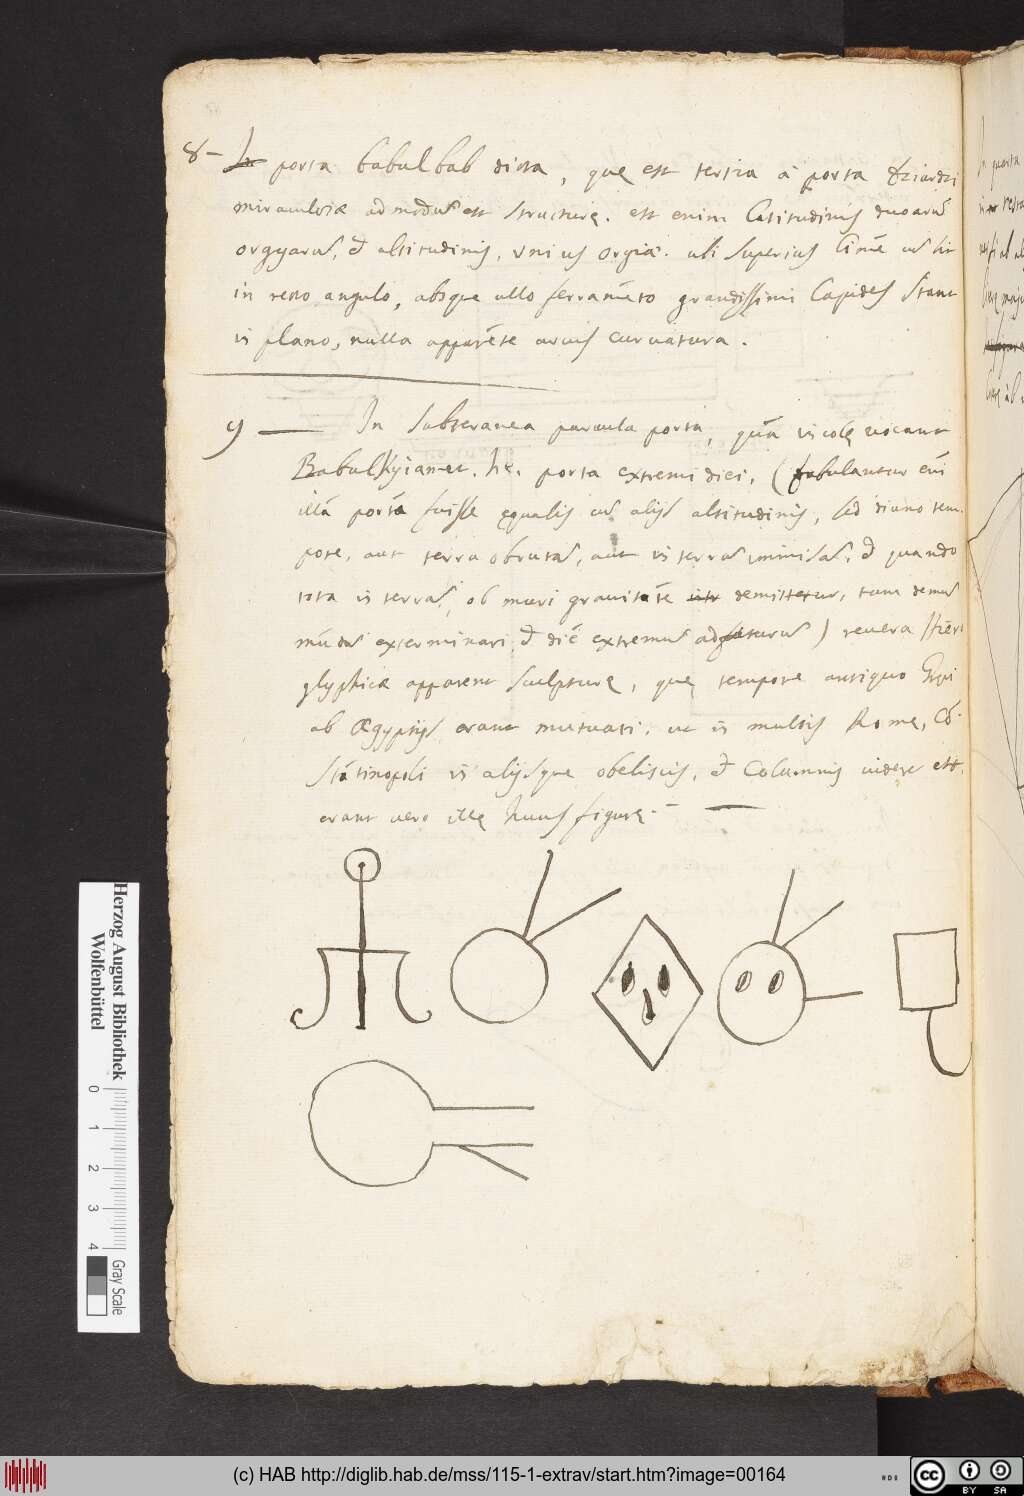 8 - In porta babulbab dicta, quę est tertia à porta Dziardzi
miraculosæ admodũ est structurę. est enim Latitudinis duorũ
orgyarũ, & altitudinis, unius orgiæ. ubi superius limẽ cũ sit
in recto angulo, absque ullo ferramẽto grandissimi Lapides stant
in plano, nulla apparẽte arcus curuatura.
9 — In subteranea paruula porta, quã incolę uocant
Babulkyiamet. hc. porta extremi diei, (fabulantur enĩ
illã portã fuisse ęqualis cũ alijs altitudinis, sed diuno tem-
pore, aut terra obrutã, aut in terrã immissã, & quando
tota in terrã, ob muri grauitãte demittetur, tum demũ
mũdũ exterminari & diẽ extremũ adfuturũ) reuera Hiero
glyphicæ apparent sculpturę, quę tempore antiquo Gręci
ab Ægyptijs erant mutuati, ut in multis Romę, Cõ-
stãtinopoli in alijsque obeliscis, & Columnis uidere est.
erant uero illę huius figurę. —
Herzog August Bibliothek
Wolfenbüttel
0 1 2 3 4
Gray Scale
(c) HAB http://diglib.hab.de/mss/115-1-extrav/start.htm?image=00164
HAB
cc BY SA